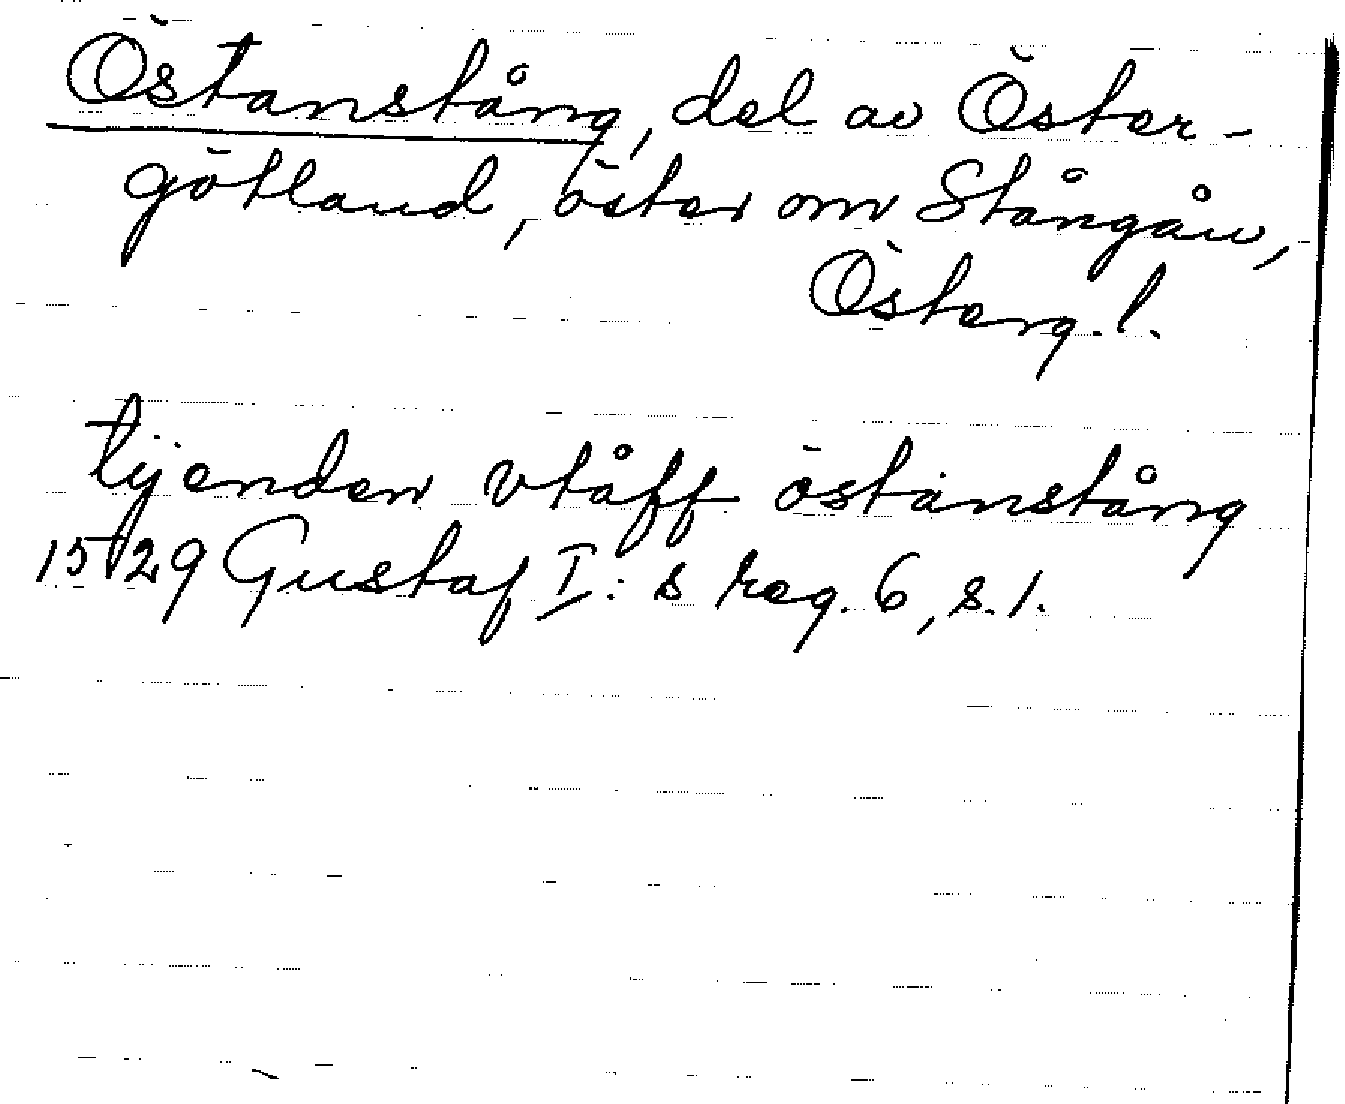 Östanstång, del av Öster-
götland, öster om Stångån,
Österg. l.
tijenden vtåff östanstång
1529 Gustaf I:s reg. 6, s. 1.